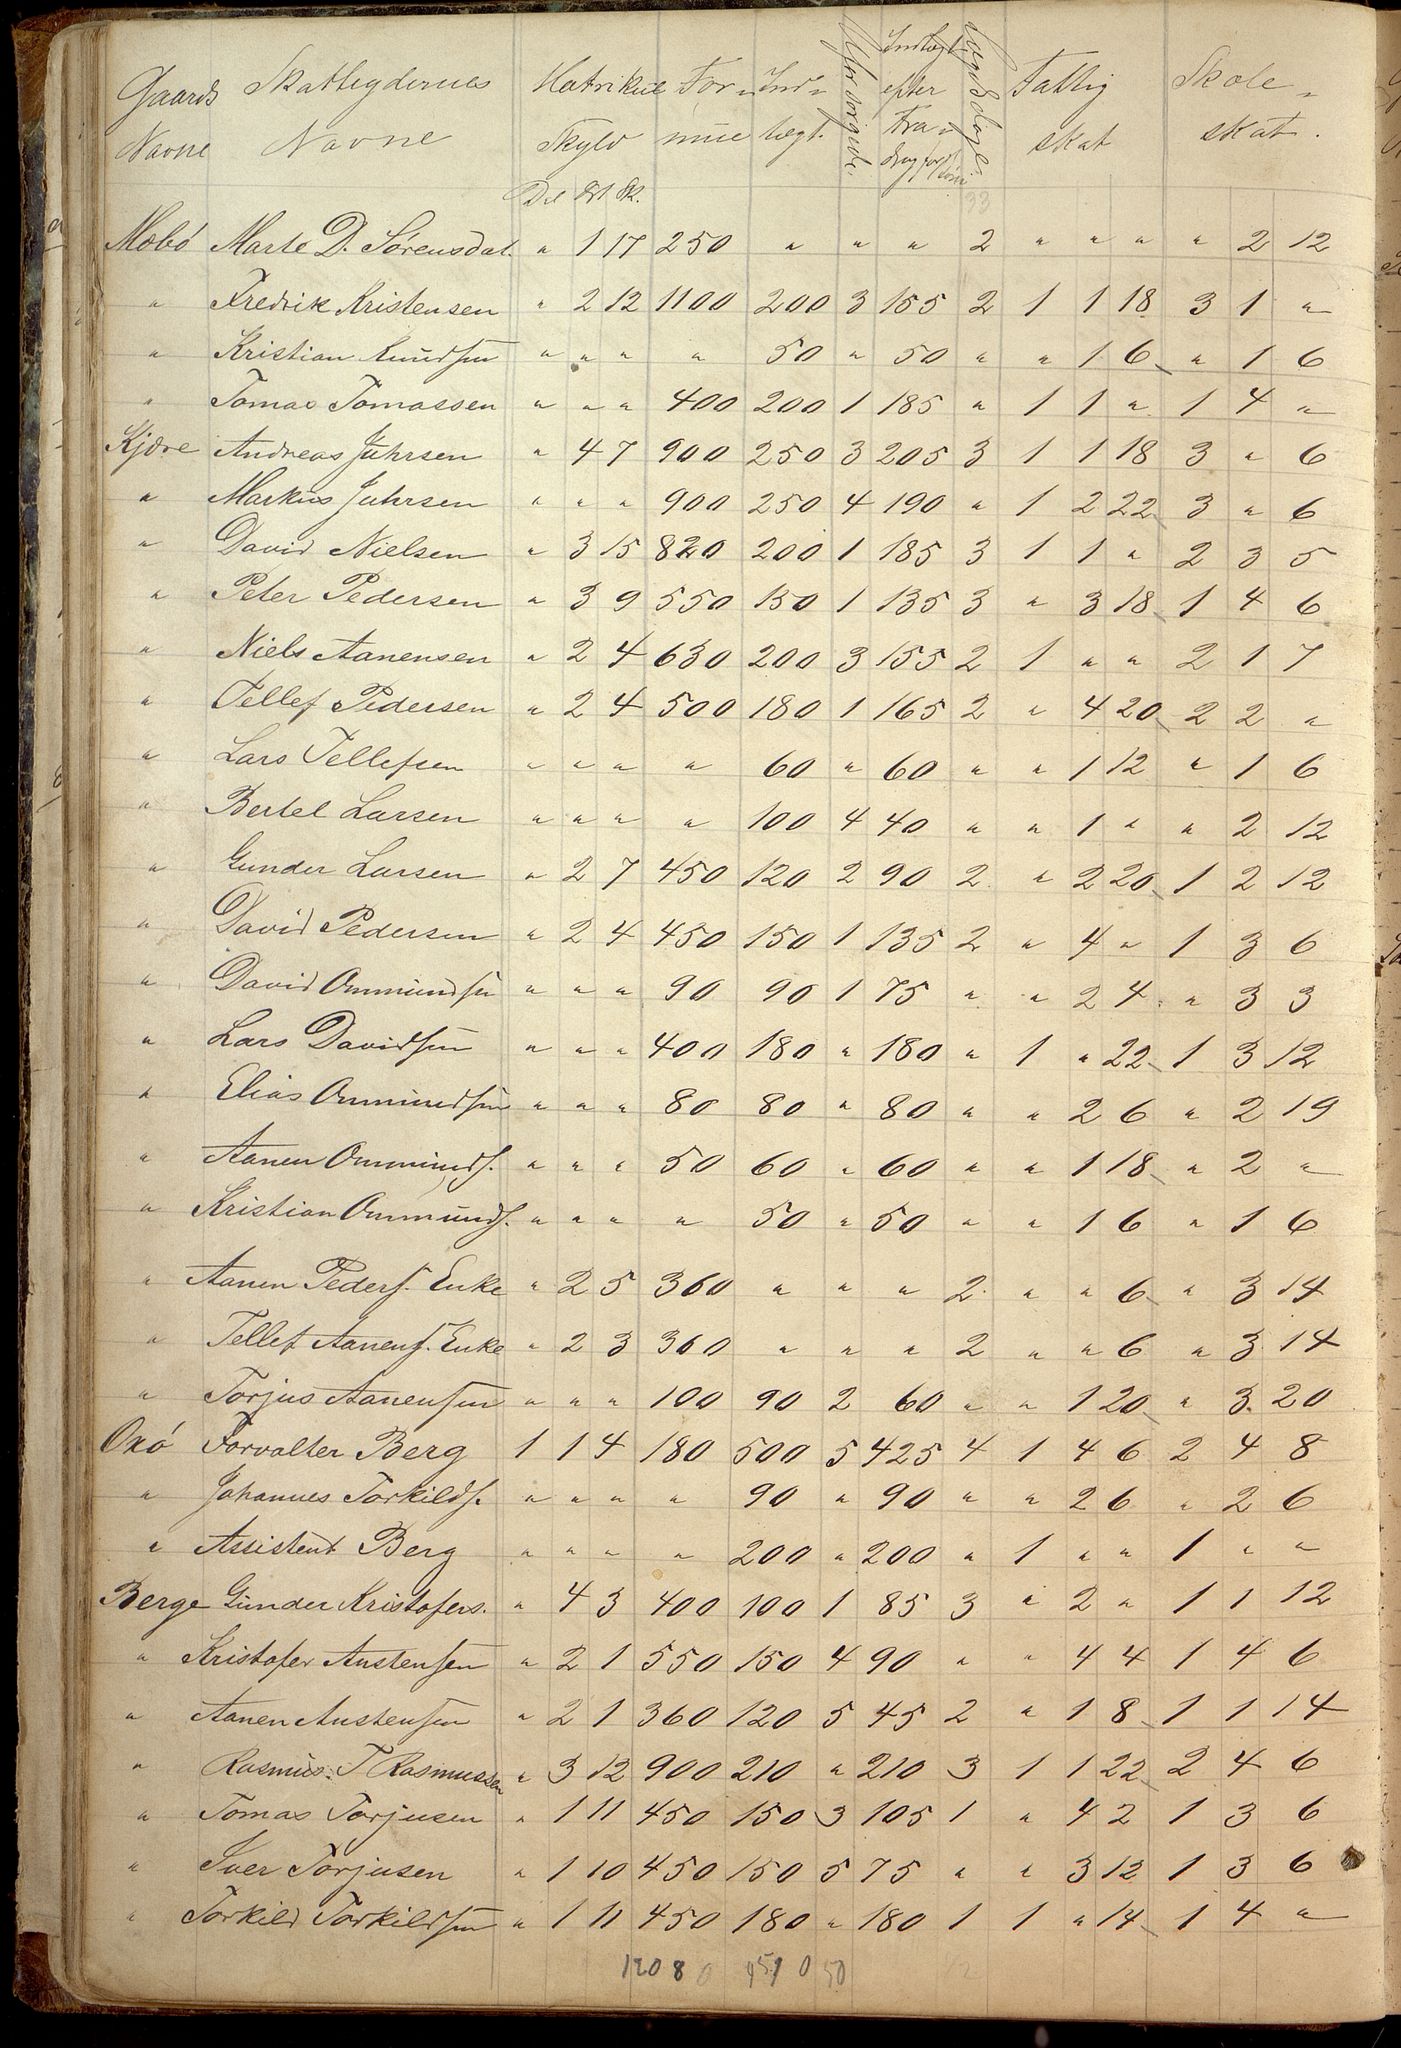 Gaards Navne Skatteydernes Navne Matrikul Skyld For- mue Ind- tægt. Uforsørgede. Indtægt efter Fra- drag Veiedage Fattig skat Skole- skat.
Dal Ort Sk.
33
Mobö Marte D. Sörensdat. " 1 17 250 " " " 2 " " " " 2 12
" Fredrik Kristensen " 2 12 1100 200 3 155 2 1 1 18 3 1 "
" Kristian Knudsen " " " " 50 " 50 " " 1 6 " 1 6
" Tomas Tomassen " " " 400 200 1 185 " 1 1 " 1 4 "
Kjöre Andreas Juhrsen " 4 7 900 250 3 205 3 1 1 18 3 " 6
" Markus Juhrsen " " " 900 250 4 190 " 1 2 22 3 " 6
" David Nielsen " 3 15 820 200 1 185 3 1 1 " 2 3 5
" Peter Pedersen " 3 9 550 150 1 135 3 " 3 18 1 4 6
" Niels Aanensen " 2 4 630 200 3 155 2 1 " " 2 1 7
" Tellef Pedersen " 2 4 500 180 1 165 2 " 4 20 2 2 "
" Lars Tellefsen " " " " 60 " 60 " " 1 12 " 1 6
" Bertel Larsen " " " " 100 4 40 " " 1 " " 2 12
" Gunder Larsen " 2 7 450 120 2 90 2 " 2 20 1 2 12
" David Pedersen " 2 4 450 150 1 135 2 " 4 " 1 3 6
" David Ommundsen " " " 90 90 1 75 " " 2 4 " 3 3
" Lars Davidsen " " " 400 180 " 180 " 1 " 22 1 3 12
" Elias Ommundsen " " " 80 80 " 80 " " 2 6 " 2 19
" Aanen Ommunds. " " " 50 60 " 60 " " 1 18 " 2 "
" Kristian Ommunds. " " " " 50 " 50 " " 1 6 " 1 6
" Aanen Peders. Enke " 2 5 360 " " " 2 " " 6 " 3 14
" Tellef Aanens. Enke " 2 3 360 " " " 2 " " 6 " 3 14
" Torjus Aanensen " " " 100 90 2 60 " " 1 20 " 3 20
Oxö Forvalter Berg 1 1 4 180 500 5 425 4 1 4 6 2 4 8
" Johannes Torkilds. " " " " 90 " 90 " " 2 6 " 2 6
" Assistent Berg " " " " 200 " 200 " 1 " " 1 " "
Berge Gunder Kristofers. " 4 3 400 100 1 85 3 " 2 " 1 1 12
" Kristofer Austensen " 2 1 550 150 4 90 " " 4 4 1 4 6
" Aanen Austensen " 2 1 360 120 5 45 2 " 1 8 1 1 14
" Rasmus T Rasmussen " 3 12 900 210 " 210 3 1 1 22 2 4 6
" Tomas Torjusen " 1 11 450 150 3 105 1 " 4 2 1 3 6
" Iver Torjusen " 1 10 450 150 5 75 " " 3 12 1 3 6
" Torkild Torkildsen " 1 11 450 180 " 180 1 1 " 14 1 4 "
12080